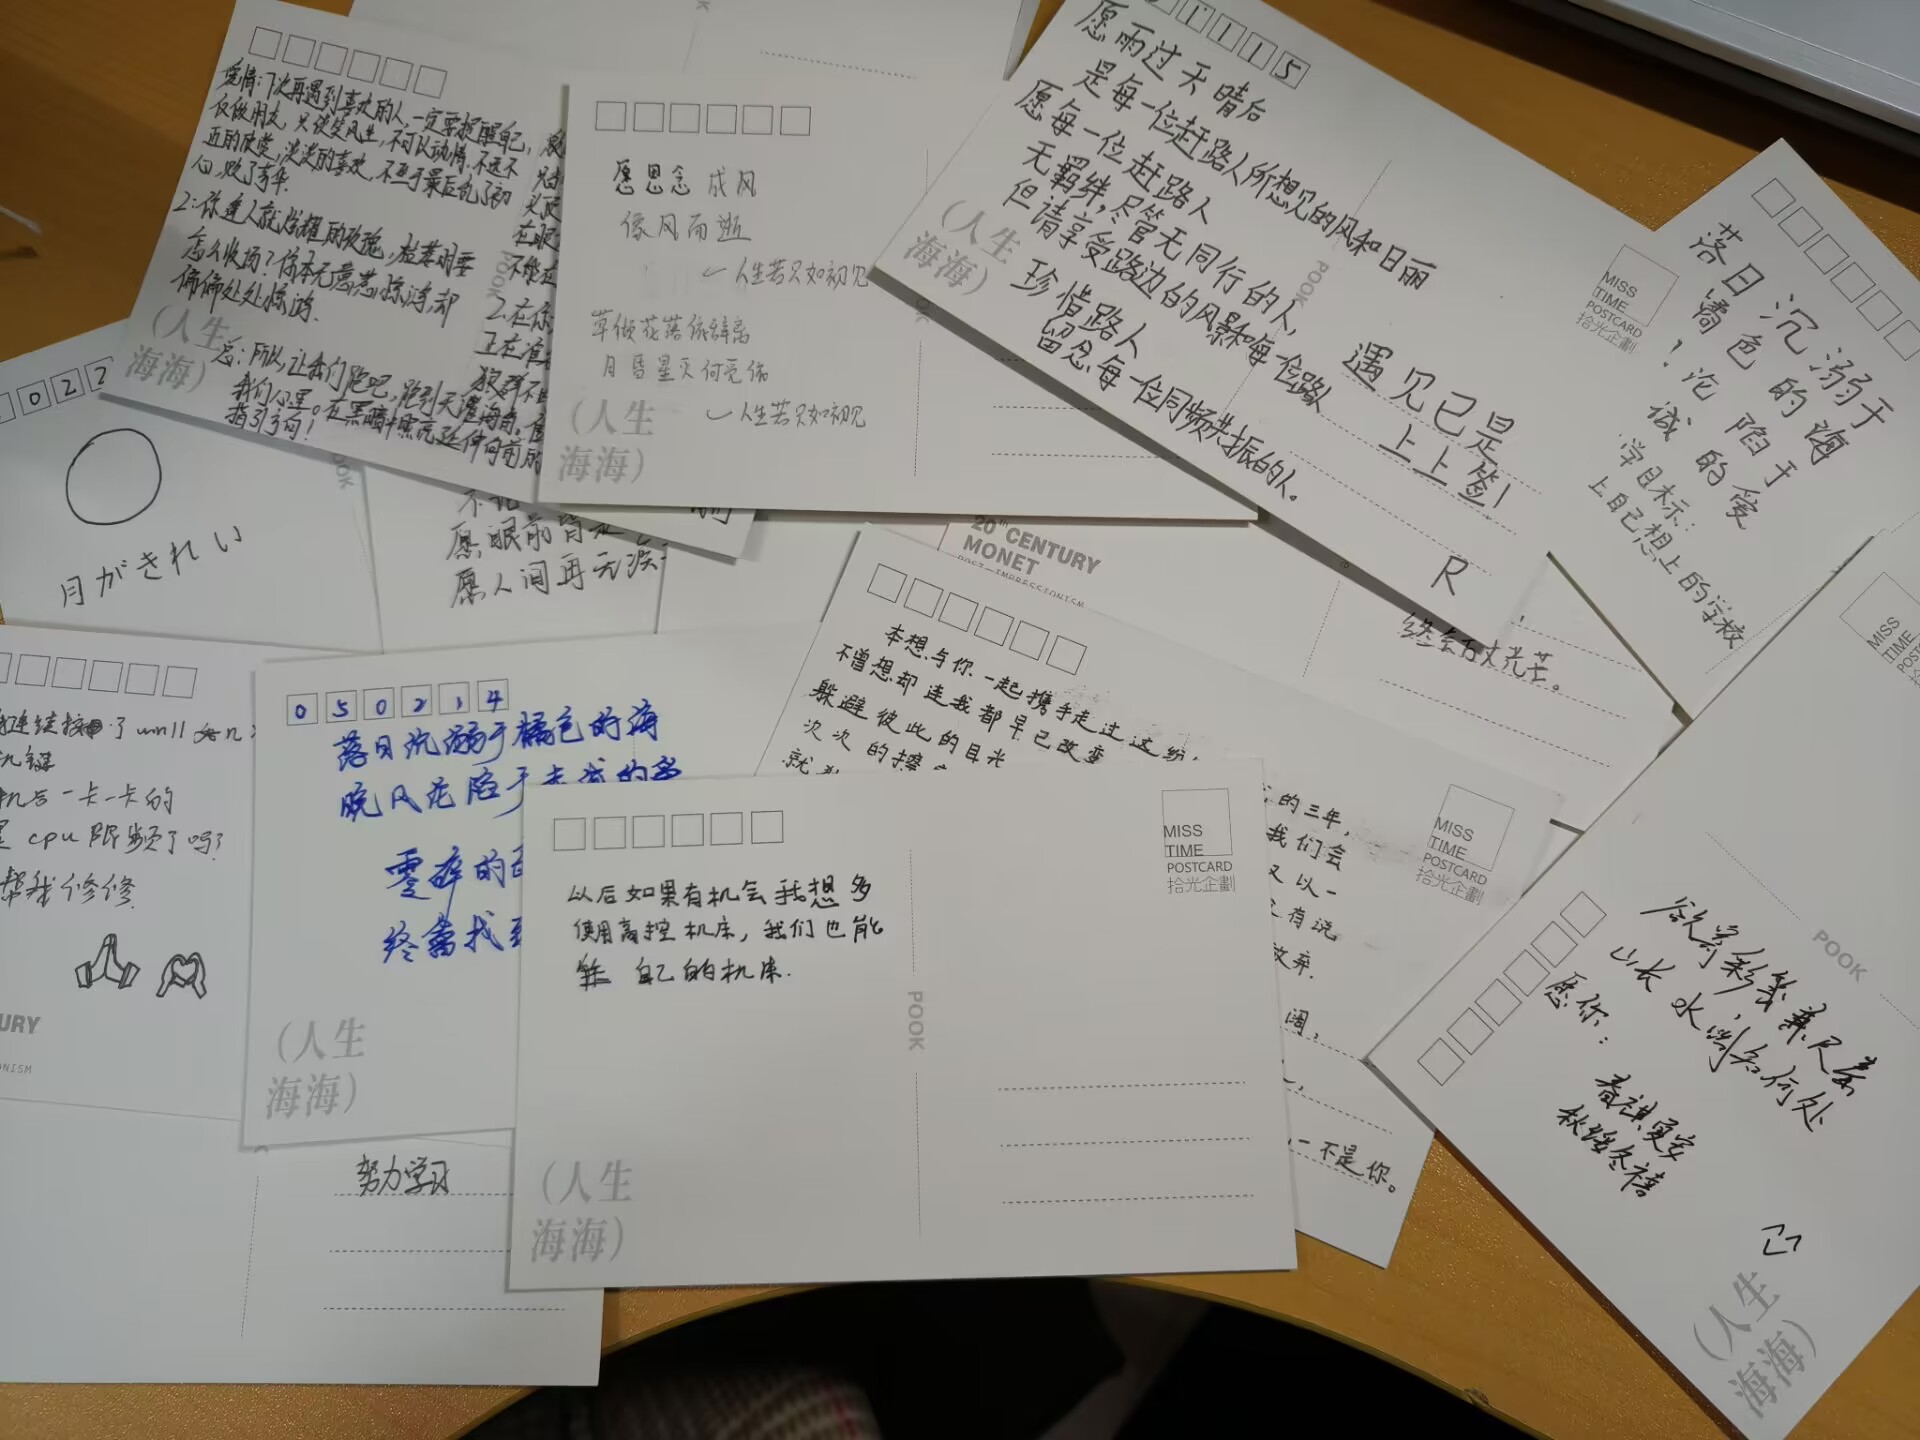 爱情:下次再遇到喜欢的人,一定要提醒自己,
仅做朋友,只谈笑风生,不可以动情.不远不
近的欣赏,淡淡的喜欢,不至于最后乱了初
心,败了芳华.
2:你逢人就炫耀的玫瑰,枯萎时要
怎么收场?你本无意惹惊鸿,却
偏偏处处惊鸿.
总:所以,让我们跑吧,跑到天涯海角.
我们小星。在黑暗中
指引方向!
(人生
海海)
POOK
2.在你
正在准
狼群不
不能在
在眼
愿思念成风
像风而逝
人生若只如初见
月昏星灭何觅你
人生若只如初见
(人生
海海)
115
愿雨过天晴后
是每一位赶路人所想见的风和日丽
愿每一位赶路人
无羁绊,尽管无同行的人,
但请享受路边的风景和每一位路人
珍惜路人
留忍每一位同频共振的人。
遇见已是
上上签!
R
(人生
海海)
POOK
MISS
TIME
POSTCARD
拾光企劃
落日沉溺于
橘色的海
!沦陷于
诚的爱
学目标:
上自己想上的学校
022
月がきれい
POOK
愿眼前皆
愿人间再无
20th CENTURY
MONET
POST-IMPRESSIONISM
终会万丈光芒。
MISS
TIME
POSTCARD
了win11
机键
机后一卡一卡的
cpu限频了吗?
帮我修修
URY
NISM
050214
落日沉溺于橘色的海
晚风沦陷于
零碎的
终会找到
(人生
海海)
本想与你一起携手走过这
不曾想却连我都早已改变
躲避彼此的目光
次次的擦
就
的三年,
我们会
又以一
有说
放弃.
阔,
不是你。
MISS
TIME
POSTCARD
拾光企劃
以后如果有机会我想多
使用高控机床,我们也能
自己的机床.
MISS
TIME
POSTCARD
拾光企劃
POOK
(人生
海海)
努力学习
欲寄彩笺兼尺素
山长水阔知何处
愿你:
春祺夏安
秋绥冬禧
POOK
(人生
海海)